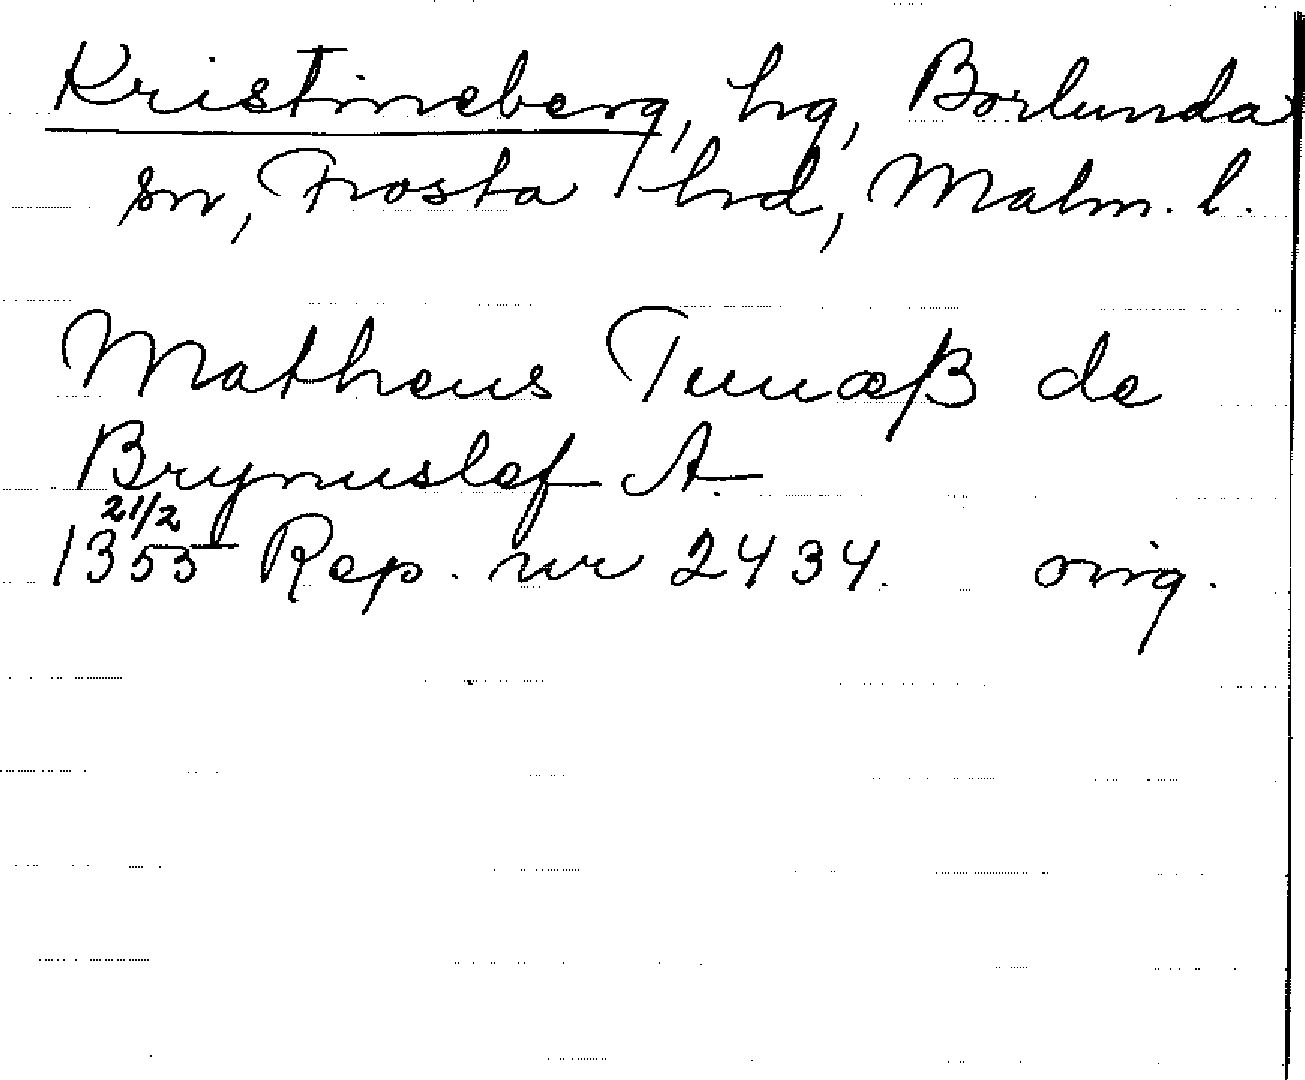 Kristineberg, hg, Borlunda
sn, Frosta hd, Malm. l.
Matheus Tunæß de
Brynuslef A.
21/2
1355 Rep. nr 2434. orig.